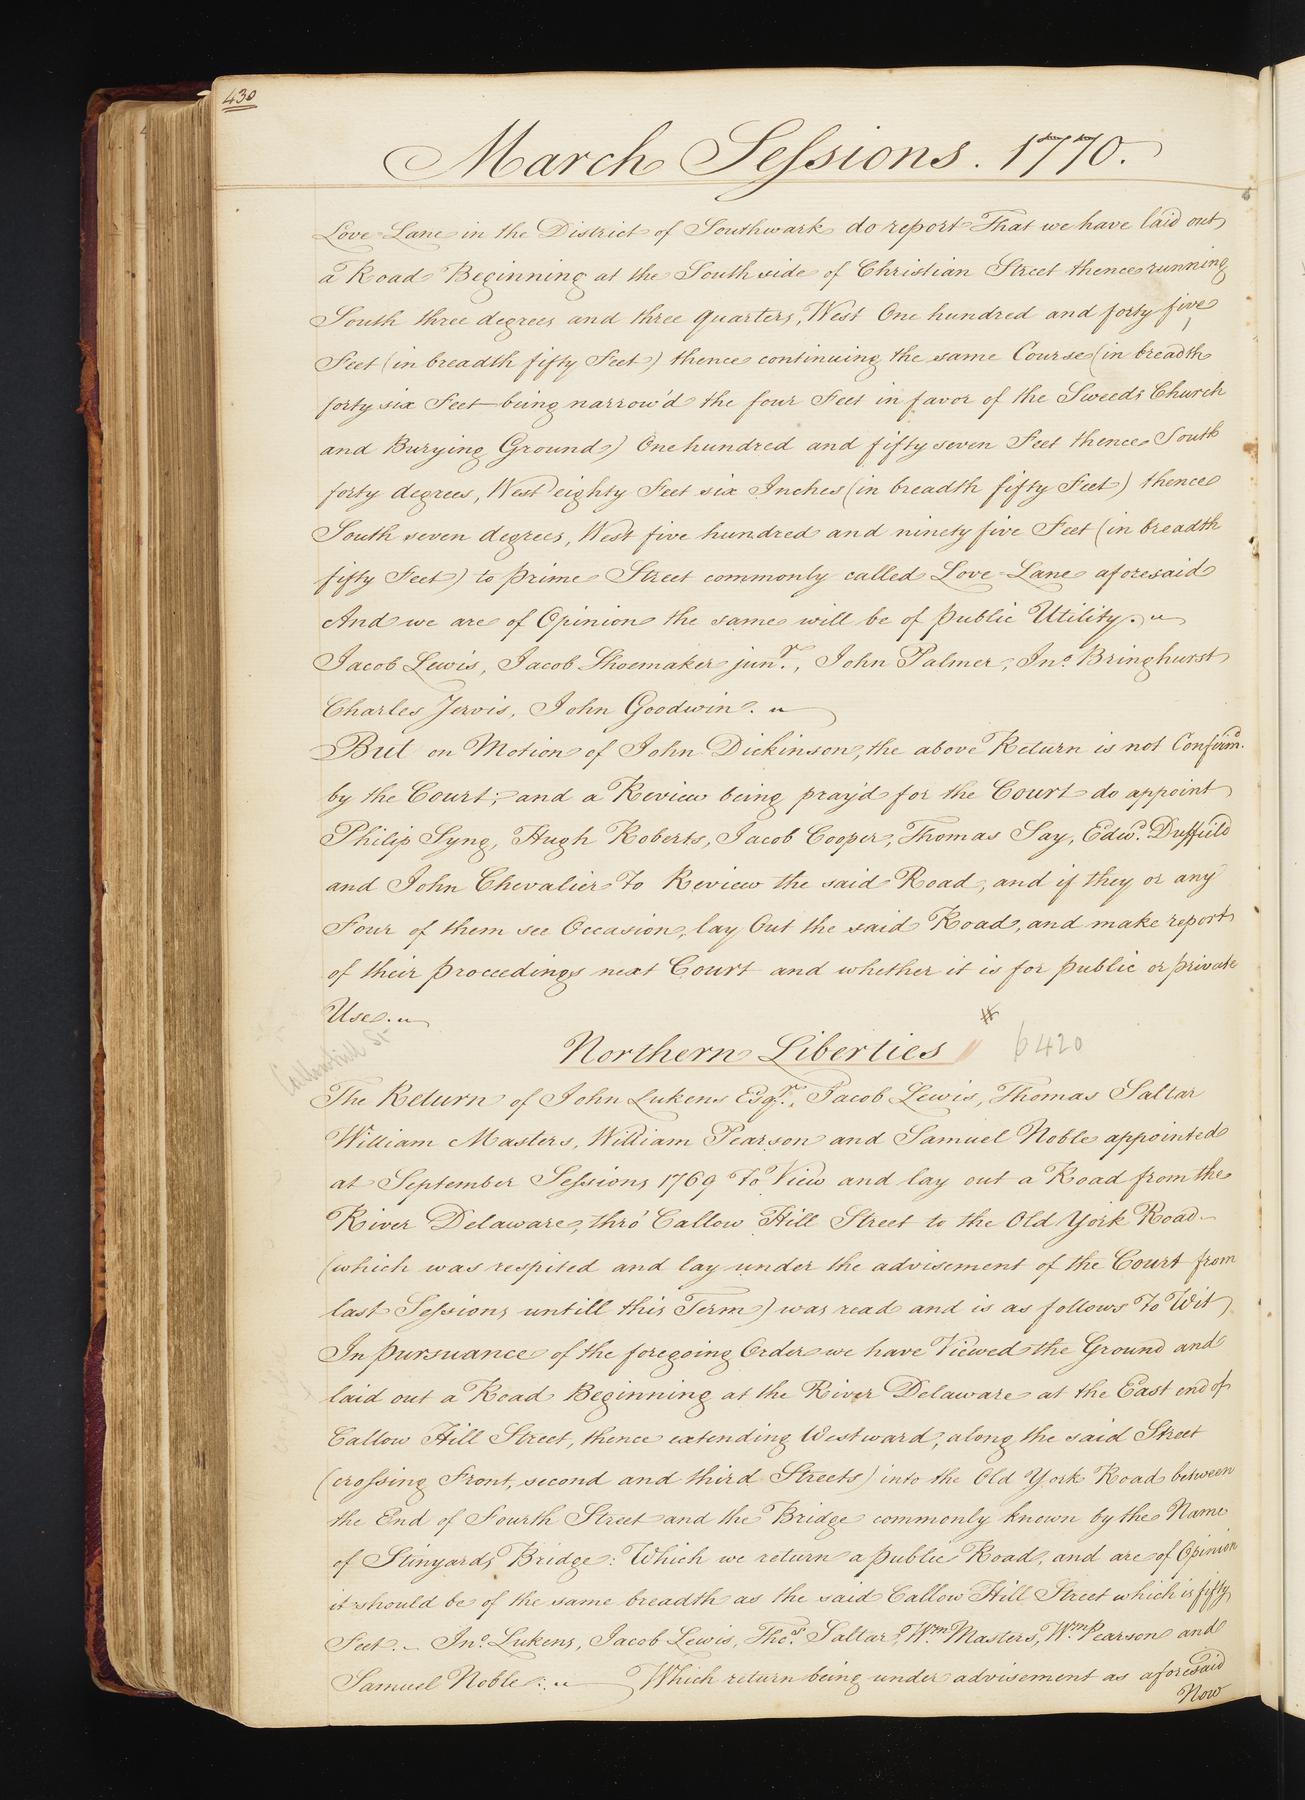 430
March Sessions. 1770.
Love-Lane in the District of Southwark do report That we have laid out
a Road Beginning at the South side of Christian Street thence running
South three degrees and three quarters, West One hundred and forty five
Feet (in breadth fifty Feet) thence continuing the same Course (in breadth
forty six Feet being narrow'd the four Feet in favor of the Sweeds Church
and Burying Ground) One hundred and fifty seven Feet thence South
forty degrees, West eighty Feet six Inches (in breadth fifty Feet) thence
South seven degrees, West five hundred and ninety five Feet (in breadth
fifty Feet) to prime Street commonly called Love-Lane aforesaid
And we are of Opinion the same will be of public Utility.
Jacob Lewis, Jacob Shoemaker junr., John Palmer, Jno. Bringhurst
Charles Jervis, John Goodwin.
But on Motion of John Dickinson, the above Return is not Confirmd.
by the Court; and a Review being pray'd for the Court do appoint
Philip Syng, Hugh Roberts, Jacob Cooper, Thomas Say, Edwd. Duffield
and John Chevalier To Review the said Road, and if they or any
Four of them see Occasion, lay Out the said Road, and make report
of their proceedings next Court and whether it is for public or private
Use.
#
Northern Liberties 6420
Callowhill St
The Return of John Lukens Esqr., Jacob Lewis, Thomas Saltar
William Masters, William Pearson and Samuel Noble appointed
at September Sessions 1769 To View and lay out a Road from the
River Delaware, thro' Callow Hill Street to the Old York Road
(which was respited and lay under the advisement of the Court from
last Sessions untill this Term) was read and is as follows To Wit
In pursuance of the foregoing Order we have Viewed the Ground and
laid out a Road Beginning at the River Delaware at the East end of
Callow Hill Street, thence extending Westward, along the said Street
(crossing Front, second and third Streets) into the Old York Road between
the End of Fourth Street and the Bridge commonly known by the Name
of Stinyards Bridge: Which we return a public Road, and are of Opinion
it should be of the same breadth as the said Callow Hill Street which is fifty
Feet. Jno. Lukens, Jacob Lewis, Thos. Saltar, Wm. Masters, Wm. Pearson and
Samuel Noble. Which return being under advisement as aforesaid
Now